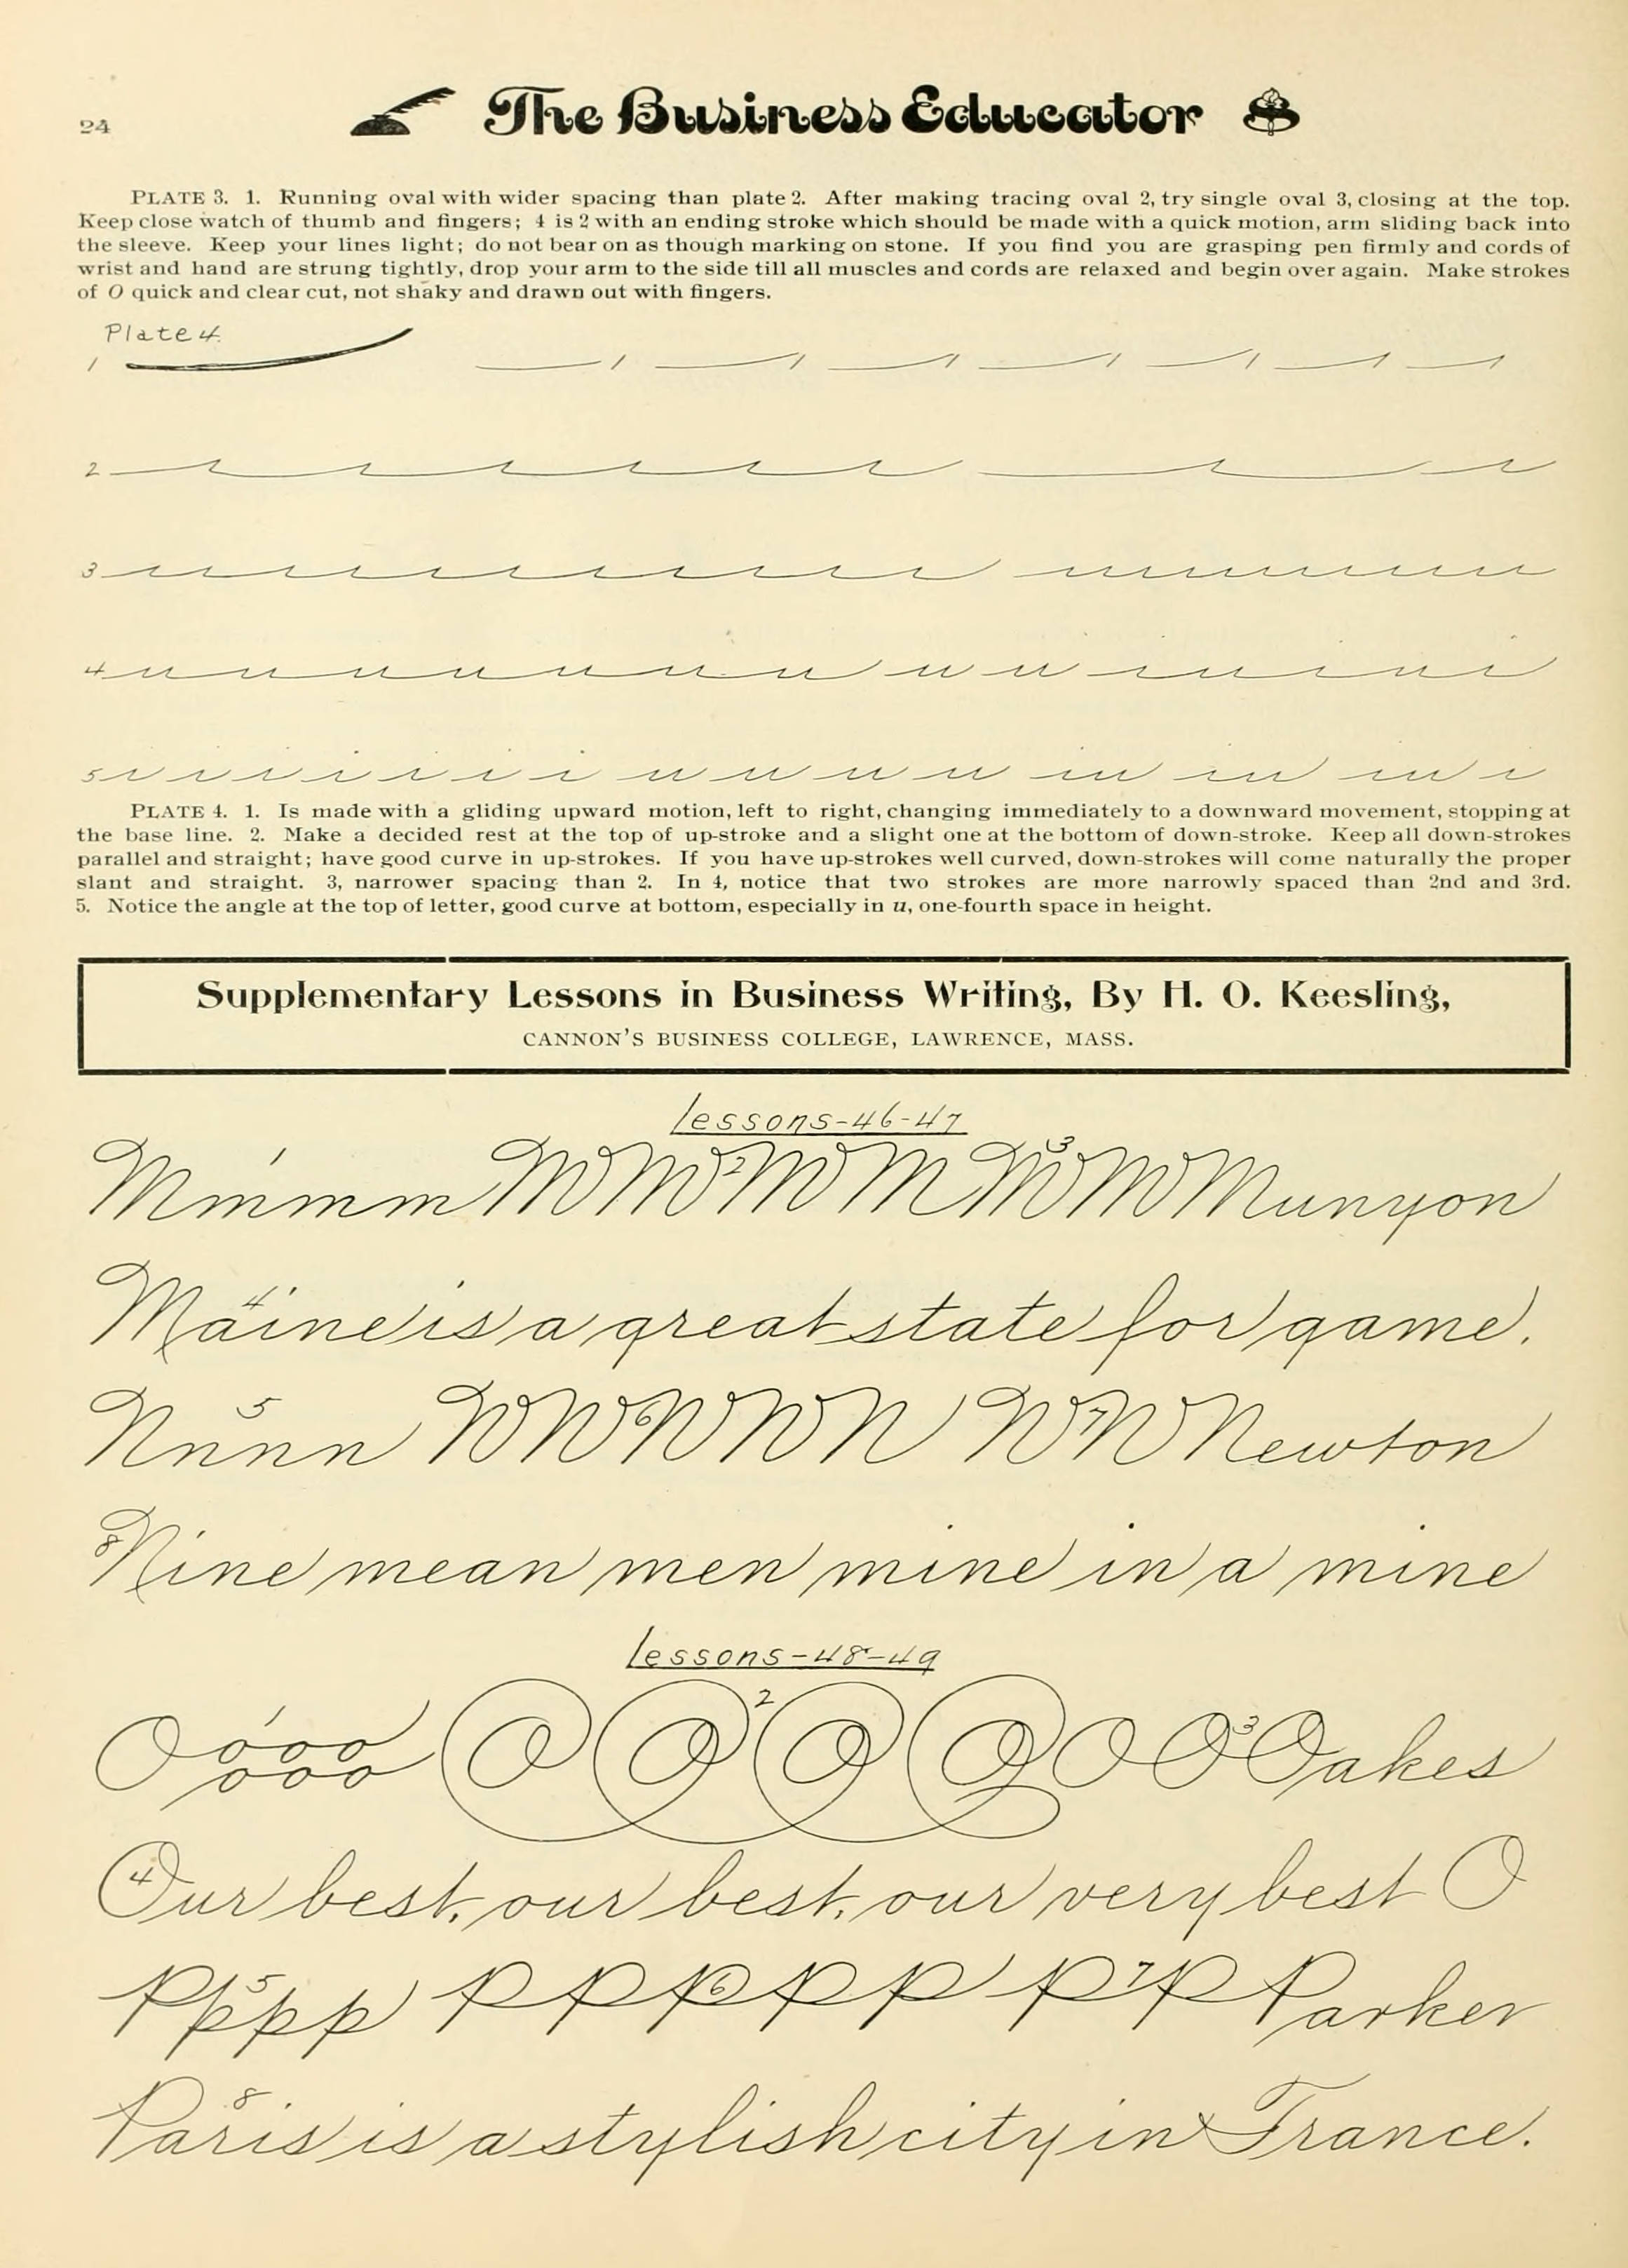 24
The Business Educator
PLATE 3. 1. Running oval with wider spacing than plate 2. After making tracing oval 2, try single oval 3, closing at the top.
Keep close watch of thumb and fingers; 4 is 2 with an ending stroke which should be made with a quick motion, arm sliding back into
the sleeve. Keep your lines light; do not bear on as though marking on stone. If you find you are grasping pen firmly and cords of
wrist and hand are strung tightly, drop your arm to the side till all muscles and cords are relaxed and begin over again. Make strokes
of O quick and clear cut, not shaky and drawn out with fingers.
Plate 4.
1
2
3
4
5
PLATE 4. 1. Is made with a gliding upward motion, left to right, changing immediately to a downward movement, stopping at
the base line. 2. Make a decided rest at the top of up-stroke and a slight one at the bottom of down-stroke. Keep all down-strokes
parallel and straight; have good curve in up-strokes. If you have up-strokes well curved, down-strokes will come naturally the proper
slant and straight. 3, narrower spacing than 2. In 4, notice that two strokes are more narrowly spaced than 2nd and 3rd.
5. Notice the angle at the top of letter, good curve at bottom, especially in u, one-fourth space in height.
Supplementary Lessons in Business Writing, By H. O. Keesling,
CANNON'S BUSINESS COLLEGE, LAWRENCE, MASS.
lessons-46-47
M 1 m m m M M 2 M M M 3 M Munyon
4 Maine is a great state for game.
N 5 n n n N N 6 N N N N 7 N Newton
8 Nine mean men mine in a mine
lessons-48-49
O 1 o o o o o o O O 2 O O O O 3 Oakes
4 Our best, our best, our very best O
P 5 p p p P P P 6 P P P 7 P Parker
8 Paris is a stylish city in France.